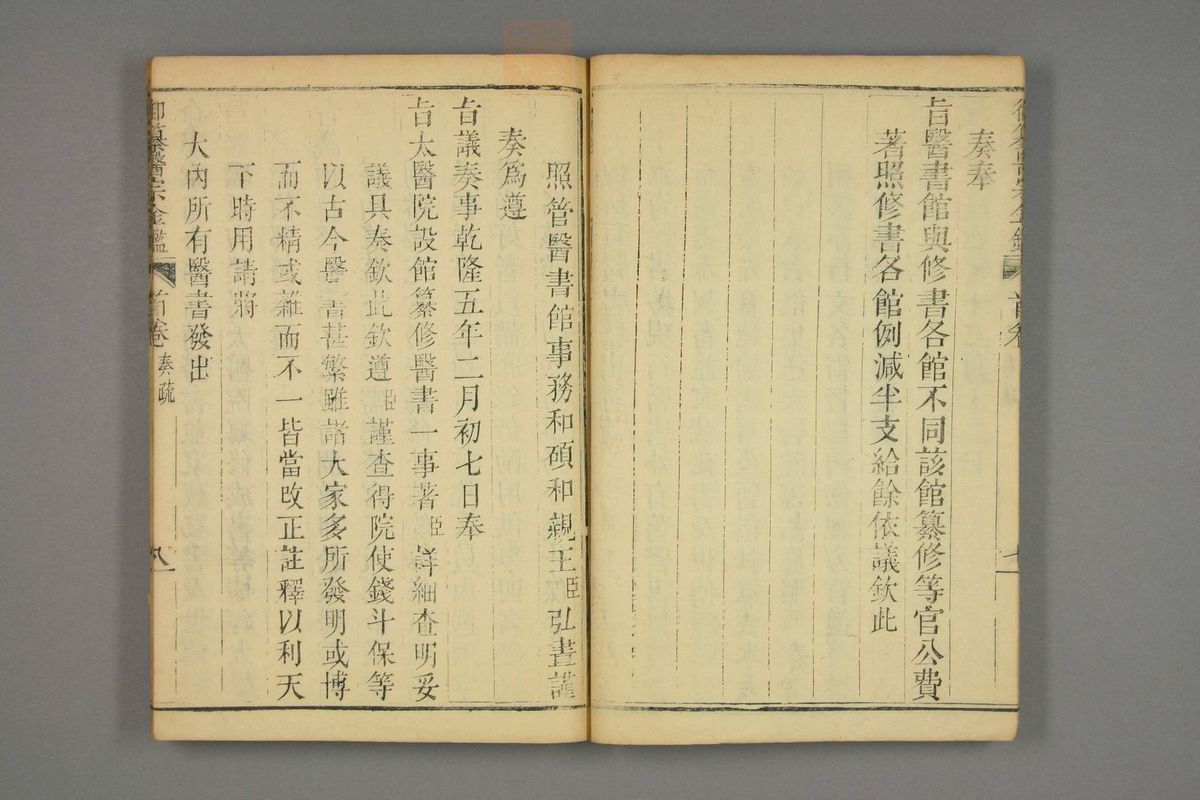 奏奉
旨醫書館與修書各館不同該館纂修等官公費
著照修書各館例減半支給餘依議欽此
照管醫書館事務和碩和親王臣弘晝謹
奏為遵
旨議奏事乾隆五年二月初七日奉
旨太醫院設館纂修醫書一事著臣詳細查明妥
議具奏欽此欽遵臣謹查得院使錢斗保等
以古今醫書甚繁雖諸大家多所發明或博
而不精或雜而不一皆當改正註釋以利天
下時用請將
大內所有醫書發出
御纂醫宗金鑑
首卷 奏疏
八